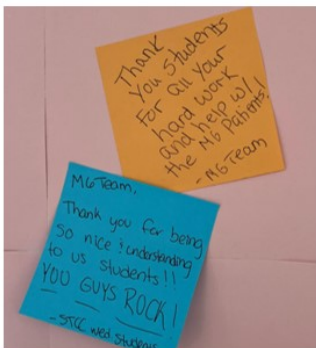 Thank
You Students
For all Your
hard work
and help w/
the M6 Patients!
- M6 Team
M6 Team,
Thank you for being
so nice & understanding
to us students!!
YOU GUYS ROCK!
- STCC Wed. Students